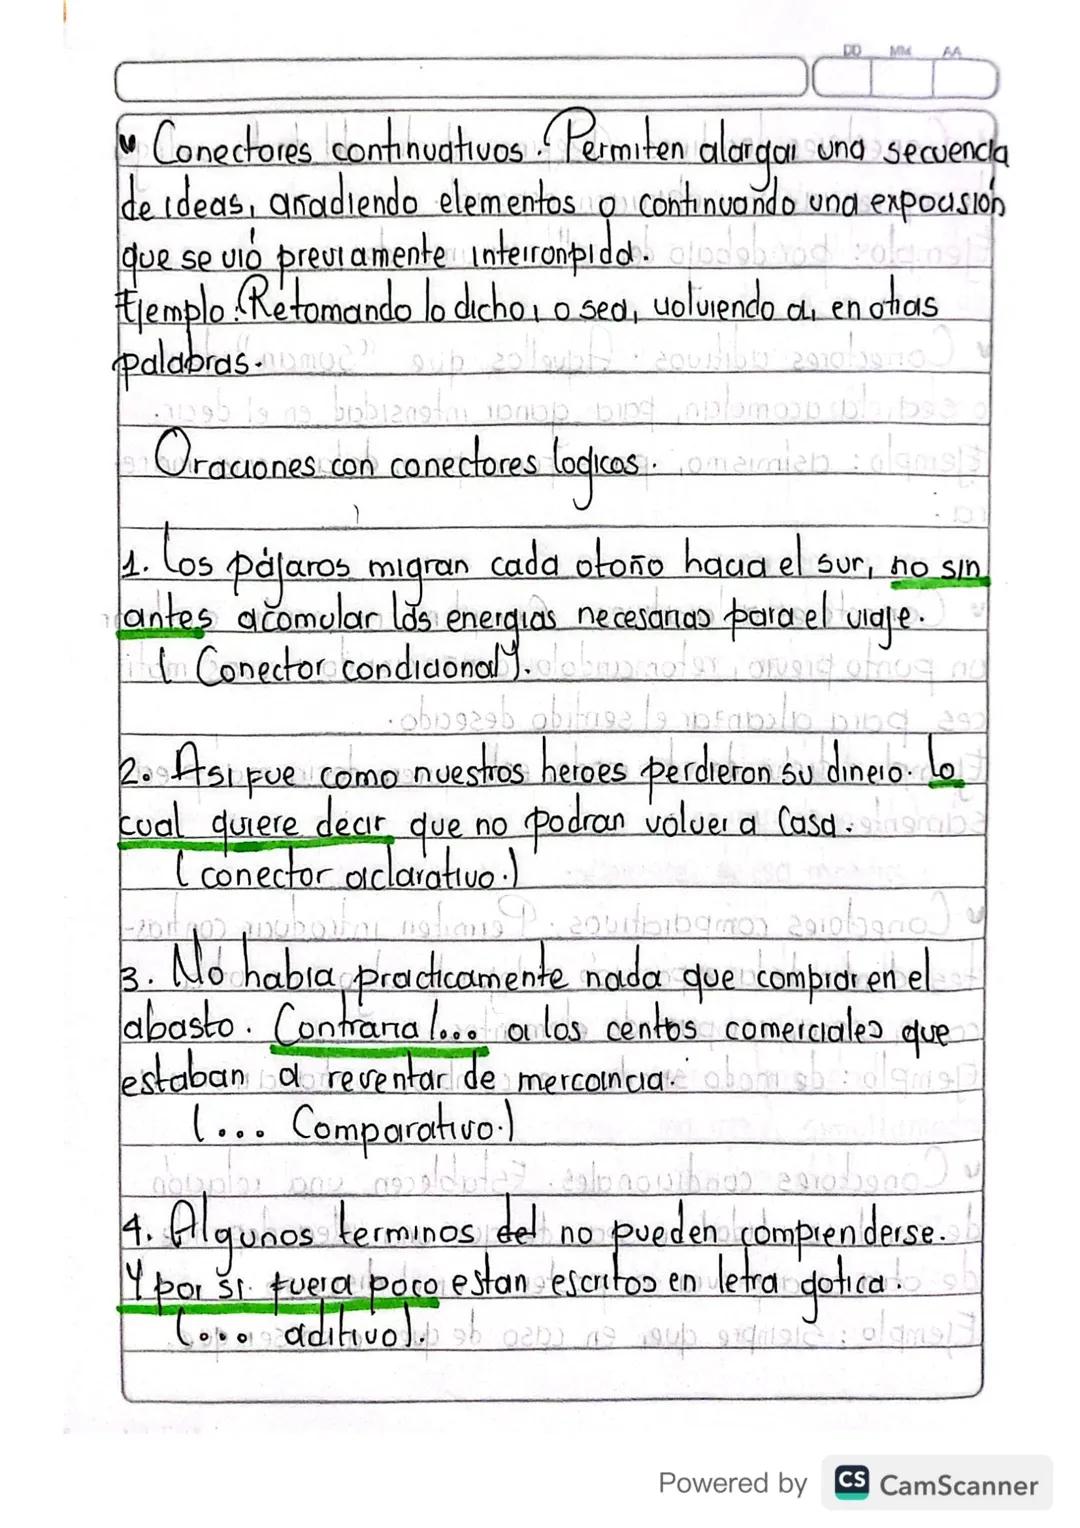 DD MM AA
Conectores continuativos: Permiten alargar una secuencia
de ideas, añadiendo elementos o continuando una expocisión
que se vió previamente interronpida.
Ejemplo: Retomando lo dicho, o sea, volviendo a, en otras
palabras.
Oraciones con conectores logicos.
1. Los pájaros migran cada otoño hacia el sur, no sin
antes acomular las energias necesarias para el viaje.
( Conector condicional).
2. Asi fue como nuestros heroes perdieron su dinero. lo
cual quiere decir que no podran volver a Casa.
( conector aclarativo.)
3. No habia practicamente nada que comprar en el
abasto. Contraria l... a los centos comerciales que
estaban a reventar de mercancia.
(... Comparativo.)
4. Algunos terminos del no pueden comprenderse.
Y por si fuera poco estan escritos en letra gotica.
(... aditivo).
Powered by CS CamScanner